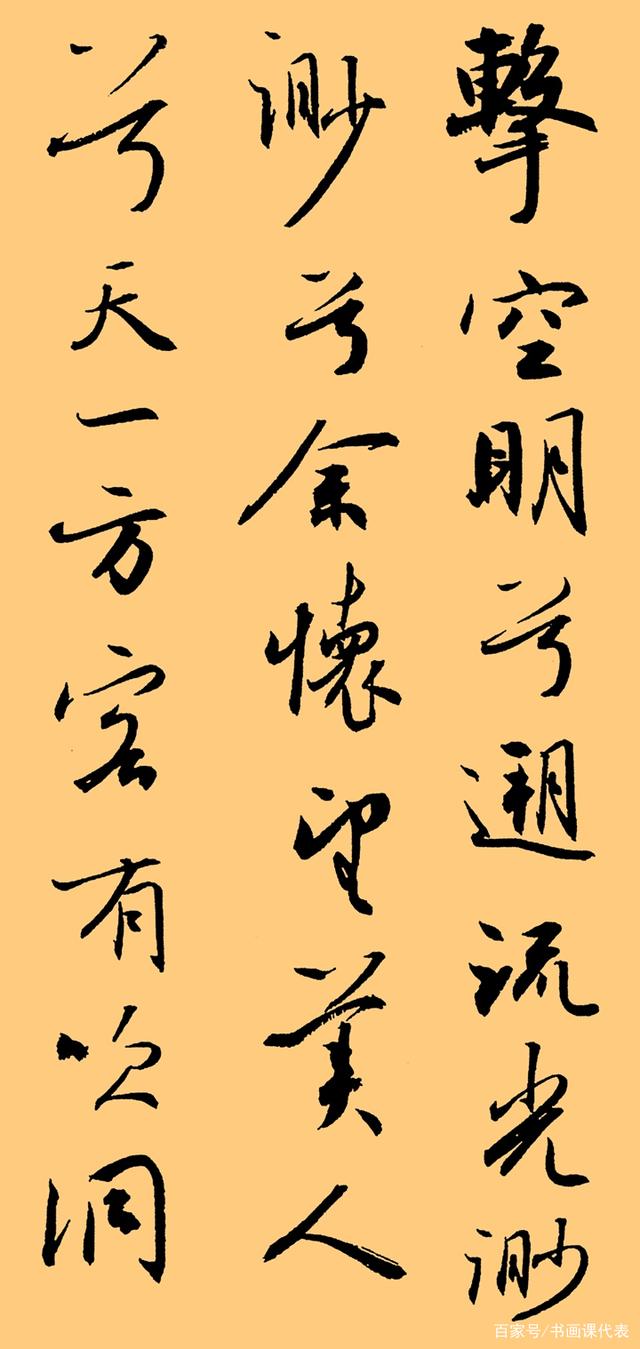 擊空明兮遡流光渺
渺兮余懷望美人
兮天一方客有吹洞
百家号/书画课代表